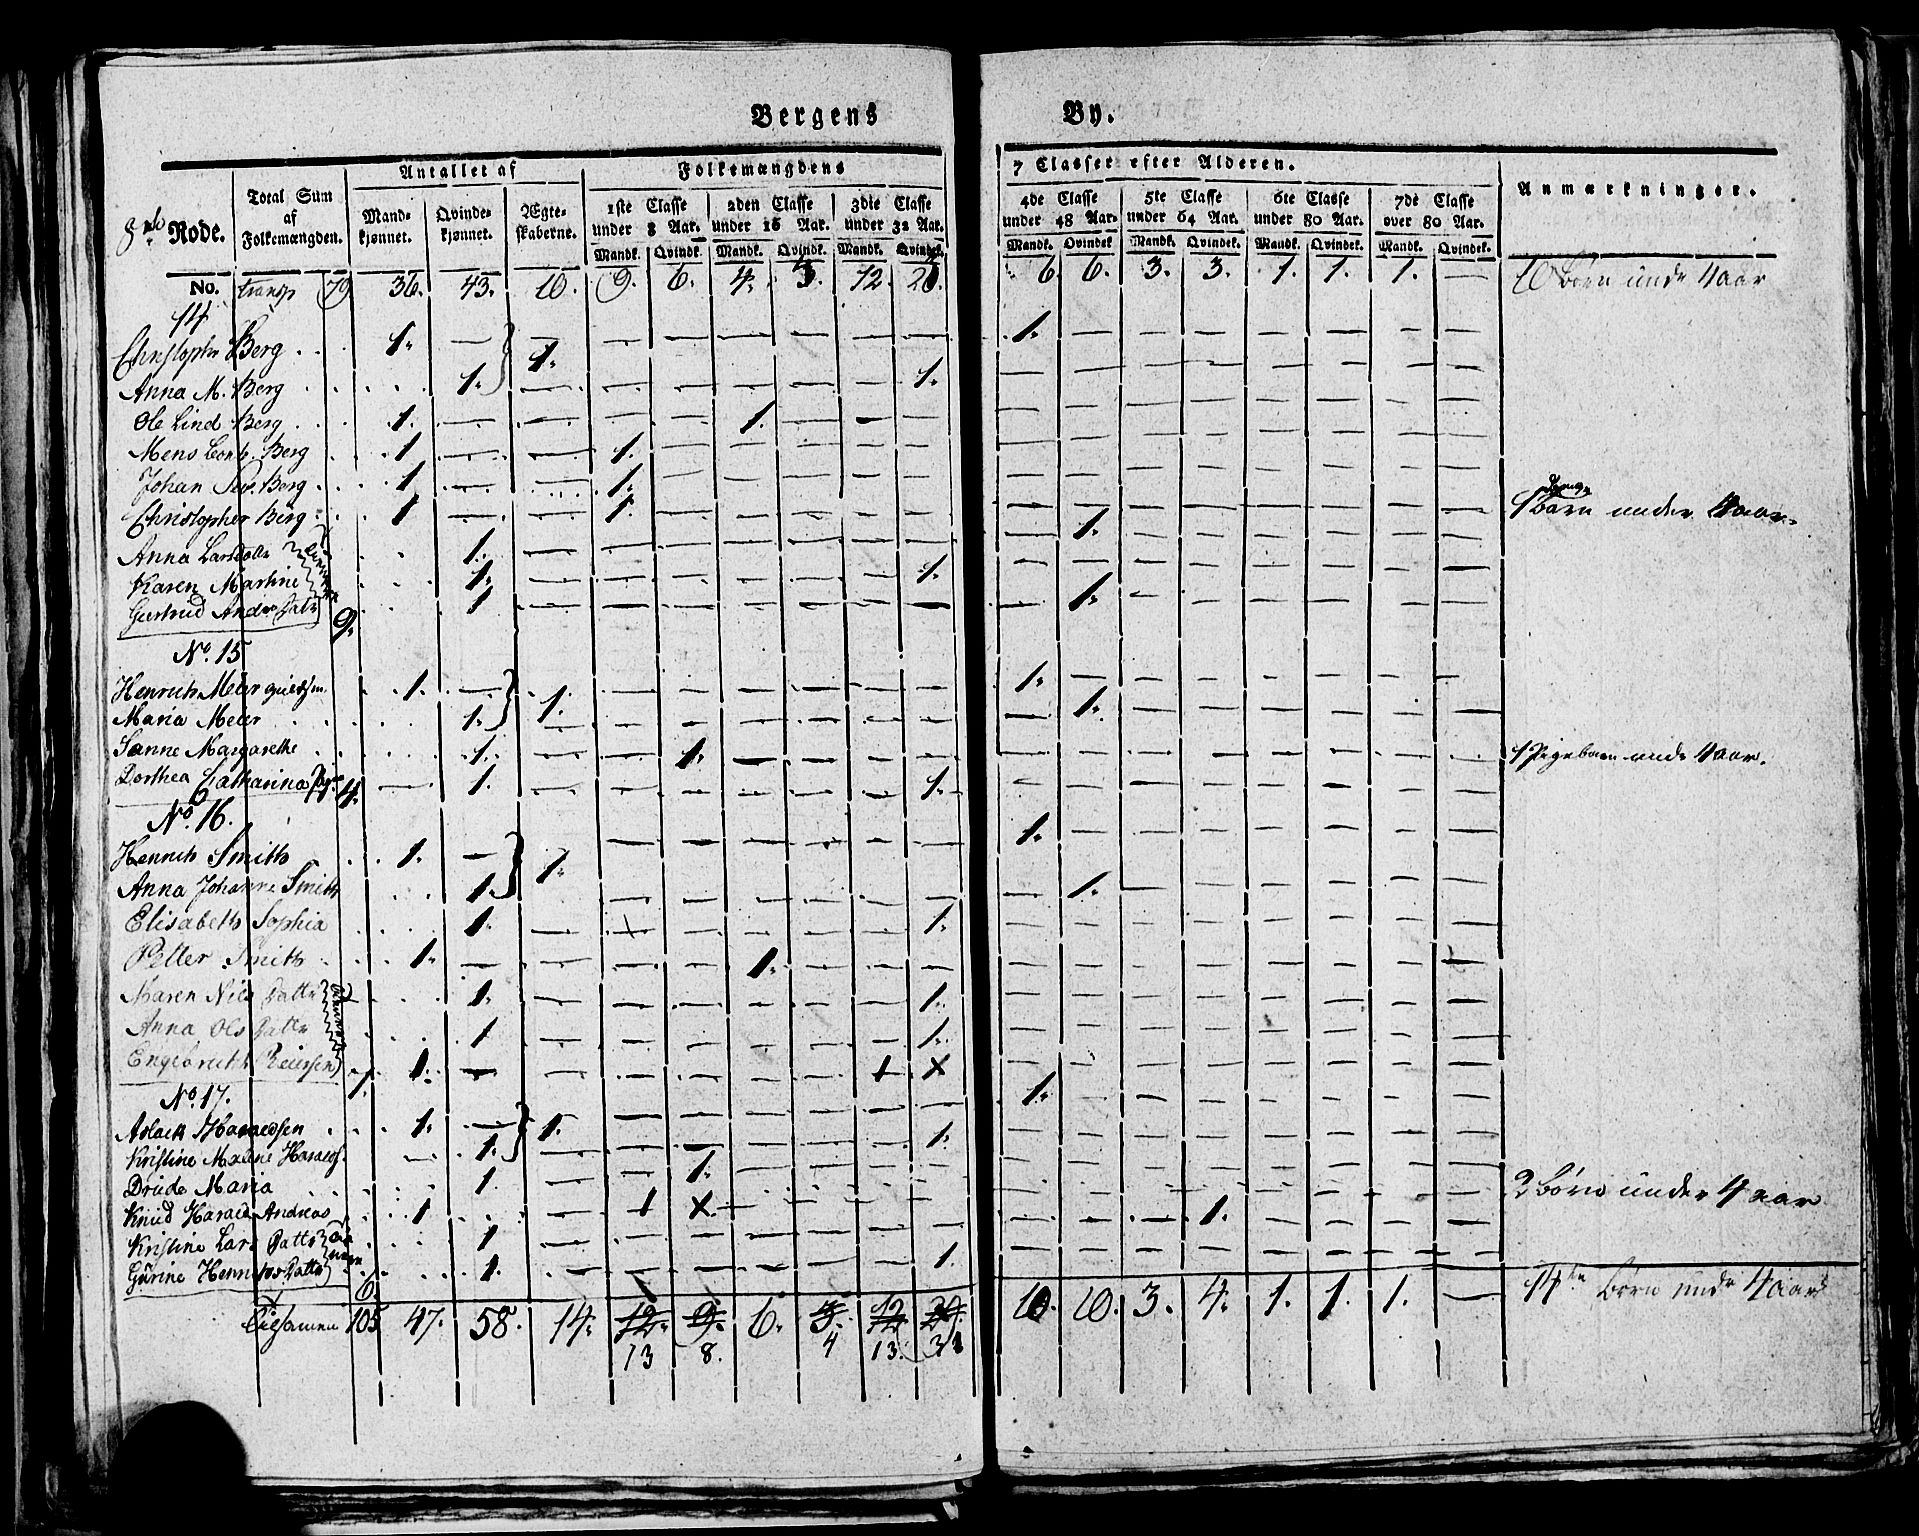 Bergens By.
Rode.
Total Sum af Folkemængden.
Antallet af
Mandkjønnet.
Qvindekjønnet.
Ægteskaberne.
Folkemængdens 7 Classer efter Alderen.
1ste Classe under 8 Aar.
2den Classe under 16 Aar.
3die Classe under 32 Aar.
4de Classe under 48 Aar.
5te Classe under 64 Aar.
6te Classe under 80 Aar.
7de Classe over 80 Aar.
Mandk. Qvindk. Mandk. Qvindk. Mandk. Qvindek. Mandk. Qvindek. Mandk. Qvindek. Mandk. Qvindek. Mandk. Qvindek.
Anmærkninger.
No. transp 79 36. 43. 10. 9. 6. 4. 3. 12. 6. 6. 3. 3. 1. 1. 1. — 10 Børn unde 4 aar
14
Christopher Berg 1. — 1. — — — — — — 1. — — — — — — —
Anna M. Berg 1. — — — — — — 1. — — — — — — — —
Ole Lind Berg 1. — — — — 1. — — — — — — — — — — —
Mens Berg 1 — — 1. — — — — — — — — — — — — —
Johan Berg 1 — 1. — — — — — — — — — — — — —
Christopher Berg 1 — — 1. — — — — — — — — — — — — —
1 Børn under 4 aar
Anna Larsdotte 1. — — — — — — — — 1. — — — — — —
Karen Martine 1. — — — — — — 1. — — — — — — — —
Gertrud 1 — — — — — — — — 1. — — — — — —
9.
No. 15
Henrich Meier 1. — 1. — — — — — — 1. — — — — — — —
Maria Meier 1. — — — — — — — 1. — — — — — —
Sanne Margarethe 1. — — 1. — — — — — — — — — — — —
1 Pigebarn unde 4 aar.
Dorthea Catharina 4. — 1. — — — — — — 1. — — — — — — — —
No. 16.
Henrich Smith 1. — 1. — — — — — — 1. — — — — — — —
Anna Johanne Smith 1. — — — — — — — 1. — — — — — —
Elisabeth Sophia 1. — — — — — 1. — — — — — — — —
Petter Smith 1. — — — — 1. — — — — — — — — — — —
Maren Nils Dattr 1. — — — — — — 1. — — — — — — — —
Anna Ols Dattr 1 — — — — — — 1. — — — — — — — —
Engebrecth 7. 1. — — — — — — 1 X — — — — — — — —
No. 17.
Aslack 1. — 1. — — — — — — 1. — — — — — — —
Kristine 1. — — — — — — 1. — — — — — — — —
Drude Maria 1. — — 1. — — — — — — — — — — — —
Knud Harald Andreas 1. — 1 X — — — — — — — — — — — —
2 børn under 4 aar
Kristine Lars Dattr 1 — — — — — — — — — — 1. — — — —
Gürine Dattr 1. — — — — — — 1. — — — — — — — —
6
Tilsamen 105 47. 58. 14. 12. 9. 6. 3. 12 10. 10. 3. 4. 1. 1. 1. — 14 børn unde 4 aar
13 8. 4 13. 31